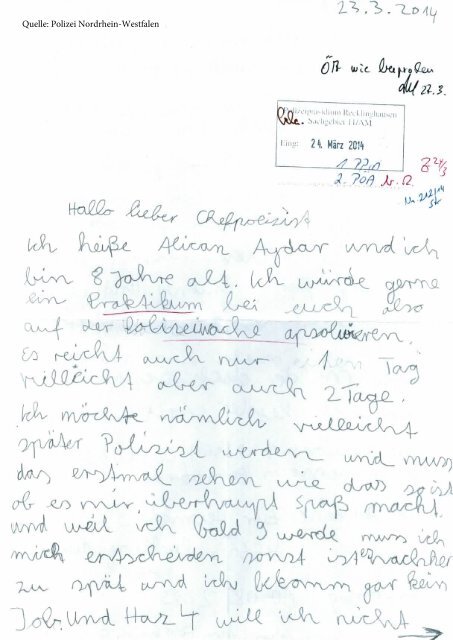 23.3.2014
Quelle: Polizei Nordrhein-Westfalen
ÖA wie besprochen
27.3.
Polizeipräsidium Recklinghausen
Sachgebiet 11/AM
Eing: 24. März 2014
1.
2. PÖA
Hallo lieber Chefpoeizist
Ich heiße Alican Aydar und ich
bin 8 Jahre alt. Ich würde gerne
ein Praktikum bei euch also
auf der Polizeiwache apsolwieren.
Es reicht auch nur einen Tag
villeicht aber auch 2 Tage.
Ich möchte nämlich vielleicht
später Polizist werden und muss
das erstmal sehen wie das so ist
ob es mir überhaupt spaß macht.
und weil ich bald 9 werde muss ich
mich entscheiden sonst ist es nachher
zu spät und ich bekomm gar kein
Job. Und Harz 4 will ich nicht →